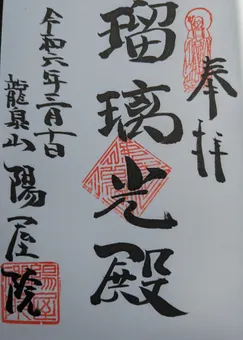 奉拝
瑠璃光殿
令和六年二月十日
龍泉山 陽屋院